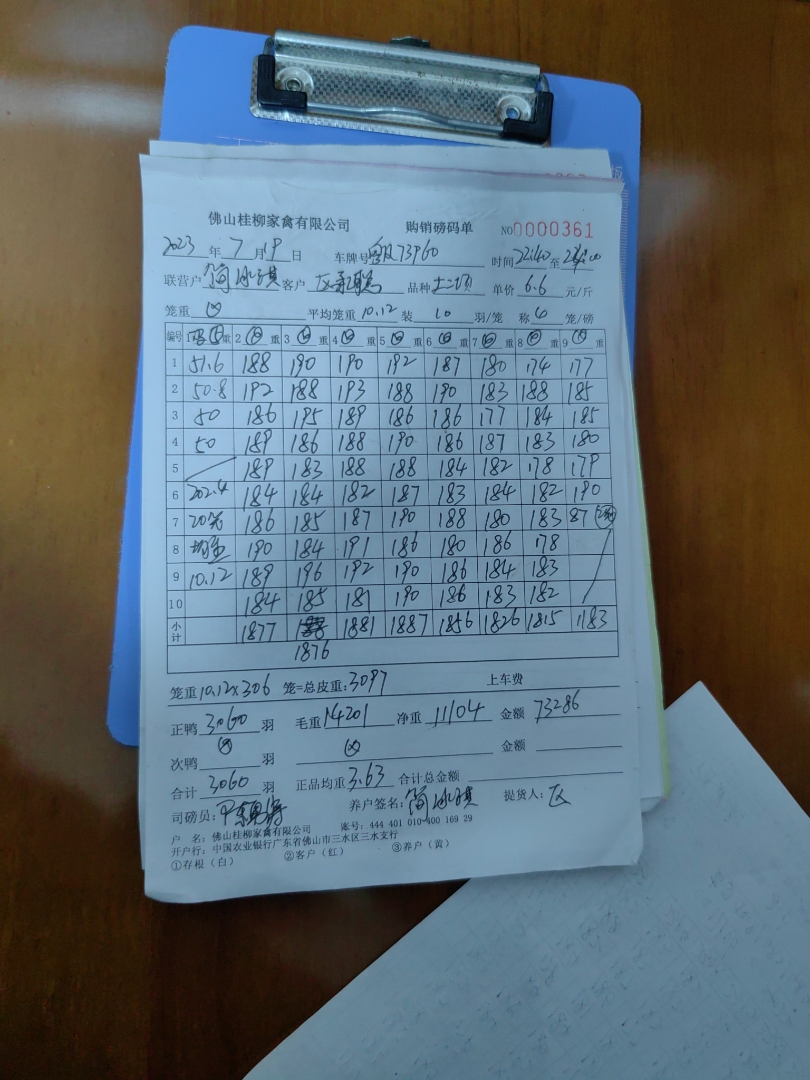 佛山桂柳家禽有限公司 购销磅码单 NO0000361
2023 年 7 月 19 日 车牌号 73P60 时间 22:40 至
联营户 简冰琪 客户 区 品种 土二项 单价 6.6 元/斤
笼重 平均笼重 10.12 装 10 羽/笼 称 4 笼/磅
编号 1 重 2 重 3 重 4 重 5 重 6 重 7 重 8 重 9 重
1 51.6 188 190 190 192 187 180 174 177
2 50.8 192 188 193 188 190 183 188 185
3 50 186 195 189 186 186 177 184 185
4 50 189 186 188 190 186 187 183 180
5 189 183 188 188 184 182 178 179
6 202.4 184 184 182 187 183 184 182 190
7 20笼 186 185 187 190 188 180 183 87
8 均重 190 184 191 186 180 186 178
9 10.12 189 196 192 190 186 184 183
10 184 185 181 190 186 183 182
小计 1877 1881 1887 1856 1826 1815 1183
1876
笼重 10.12×306 笼=总皮重: 3097 上车费
正鸭 3060 羽 毛重 14201 净重 11104 金额 73286
次鸭 羽 金额
合计 3060 羽 正品均重 3.63 合计总金额
司磅员: 养户签名: 简冰琪 提货人: 区
户 名: 佛山桂柳家禽有限公司 账号: 444 401 010 400 169 29
开户行: 中国农业银行广东省佛山市三水区三水支行
①存根(白) ②客户(红) ③养户(黄)